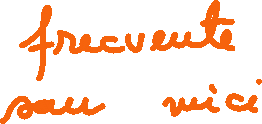 frecvente
sau mici